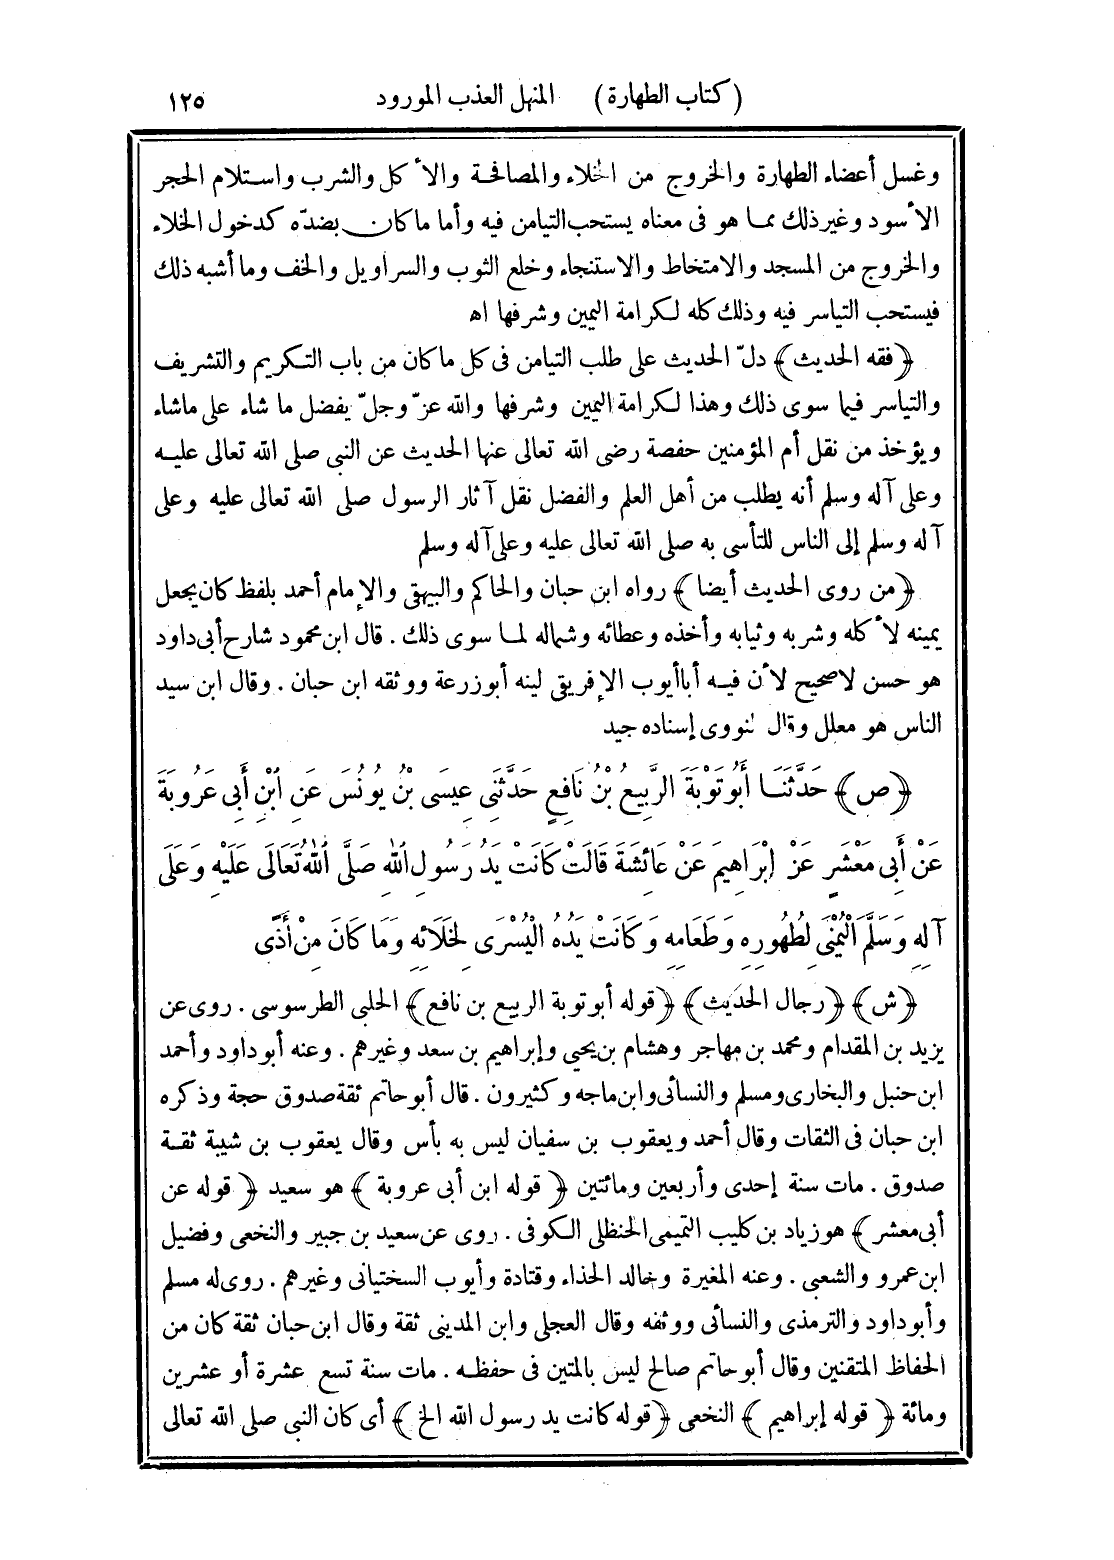 (كتاب الطهارة) المنهل العذب المورود ١٢٥
وغسل أعضاء الطهارة والخروج من الخلاء والمصافحة والأكل والشرب واستلام الحجر
الأسود وغير ذلك مما هو فى معناه يستحب التيامن فيه وأما ما كان بضدّه كدخول الخلاء
والخروج من المسجد والامتخاط والاستنجاء وخلع الثوب والسراويل والخف وما أشبه ذلك
فيستحب التياسر فيه وذلك كله لكرامة اليمين وشرفها اه
﴿فقه الحديث﴾ دلّ الحديث على طلب التيامن فى كل ما كان من باب التكريم والتشريف
والتياسر فيما سوى ذلك وهذا لكرامة اليمين وشرفها والله عزّ وجلّ يفضل ما شاء على ماشاء
ويؤخذ من نقل أم المؤمنين حفصة رضى الله تعالى عنها الحديث عن النبى صلى الله تعالى عليه
وعلى آله وسلم أنه يطلب من أهل العلم والفضل نقل آثار الرسول صلى الله تعالى عليه وعلى
آله وسلم إلى الناس للتأسى به صلى الله تعالى عليه وعلى آله وسلم
﴿من روى الحديث أيضا﴾ رواه ابن حبان والحاكم والبيهقى والإمام أحمد بلفظ كان يجعل
يمينه لأكله وشربه وثيابه وأخذه وعطائه وشماله لما سوى ذلك . قال ابن محمود شارح أبى داود
هو حسن لا صحيح لأن فيه أبا أيوب الإفريقى لينه أبو زرعة ووثقه ابن حبان . وقال ابن سيد
الناس هو معلل وقال النووى إسناده جيد
﴿ص﴾ حَدَّثَنَا أَبُو تَوْبَةَ الرَّبِيعُ بْنُ نَافِعٍ حَدَّثَنِى عِيسَى بْنُ يُونُسَ عَنِ ابْنِ أَبِى عَرُوبَةَ
عَنْ أَبِى مَعْشَرٍ عَنْ إِبْرَاهِيمَ عَنْ عَائِشَةَ قَالَتْ كَانَتْ يَدُ رَسُولِ اللهِ صَلَّى اللهُ تَعَالَى عَلَيْهِ وَعَلَى
آلِهِ وَسَلَّمَ الْيُمْنَى لِطُهُورِهِ وَطَعَامِهِ وَكَانَتْ يَدُهُ الْيُسْرَى لِخَلَائِهِ وَمَا كَانَ مِنْ أَذًى
﴿ش﴾ ﴿رجال الحديث﴾ ﴿قوله أبو توبة الربيع بن نافع﴾ الحلبى الطرسوسى . روى عن
يزيد بن المقدام ومحمد بن مهاجر وهشام بن يحيى وإبراهيم بن سعد وغيرهم . وعنه أبو داود وأحمد
ابن حنبل والبخارى ومسلم والنسائى وابن ماجه وكثيرون . قال أبو حاتم ثقة صدوق حجة وذكره
ابن حبان فى الثقات وقال أحمد ويعقوب بن سفيان ليس به بأس وقال يعقوب بن شيبة ثقة
صدوق . مات سنة إحدى وأربعين ومائتين ﴿قوله ابن أبى عروبة﴾ هو سعيد ﴿قوله عن
أبى معشر﴾ هو زياد بن كليب التميمى الحنظلى الكوفى . روى عن سعيد بن جبير والنخعى وفضيل
ابن عمرو والشعبى . وعنه المغيرة وخالد الحذاء وقتادة وأيوب السختيانى وغيرهم . روى له مسلم
وأبو داود والترمذى والنسائى ووثقه وقال العجلى وابن المدينى ثقة وقال ابن حبان ثقة كان من
الحفاظ المتقنين وقال أبو حاتم صالح ليس بالمتين فى حفظه . مات سنة تسع عشرة أو عشرين
ومائة ﴿قوله إبراهيم﴾ النخعى ﴿قوله كانت يد رسول الله الخ﴾ أى كان النبى صلى الله تعالى